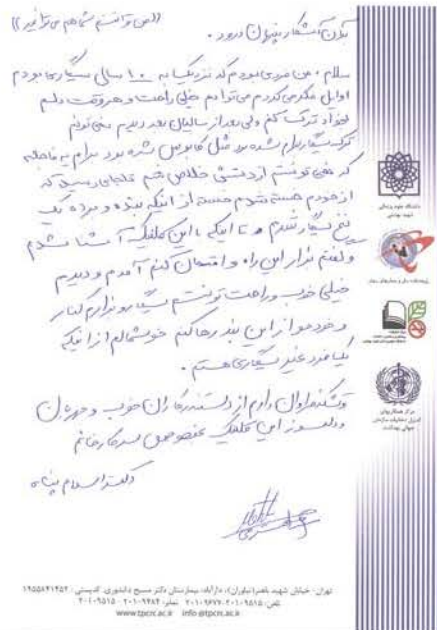 ((من توانستم شما هم می توانید))
به آن آشکار پنهان درود .
سلام ، من مردی بودم که نزدیک به ۱۰ سالی سیگاری بودم
اوایل فکر می کردم می توانم خیلی راحت و هر وقت دلم
بخواد ترکش کنم ولی بعد از سالیان بعد دیدم نمی تونم
ترک سیگار برام شده بود مثل کابوس شده بود برام یه فاجعه
که نمی تونستم از دستش خلاص شم به جایی رسید که
از خودم خسته شدم خسته از اینکه بنده و برده یک
نخ سیگار شدم تا اینکه با این کلینیک آشنا شدم
و گفتم بزار این راه و امتحان کنم آمدم و دیدم
خیلی خوب و راحت تونستم سیگارو بزارم کنار
و خودمو از این بند رها کنم خوشحالم از اینکه
یک فرد غیر سیگاری هستم .
تشکر فراوان دارم از دست اندرکاران خوب و مهربان
و دلسوز این کلینیک بخصوص سرکار خانم
دکتر اسلام پناه
دانشگاه علوم پزشکی
شهید بهشتی
مرکز همکاریهای
کنترل دخانیات سازمان
جهانی بهداشت
تهران - خیابان شهید باهنر(نیاوران)، دارآباد، بیمارستان دکتر مسیح دانشوری، کدپستی: ۱۹۵۵۸۴۱۴۵۲
تلفن: ۲۰۱۰۹۵۱۵-۲۰۱۰۹۶۷۷ نمابر: ۲۰۱۰۹۴۸۴-۲۰۱۰۹۵۱۵
www.tpcrc.ac.ir info@tpcrc.ac.ir